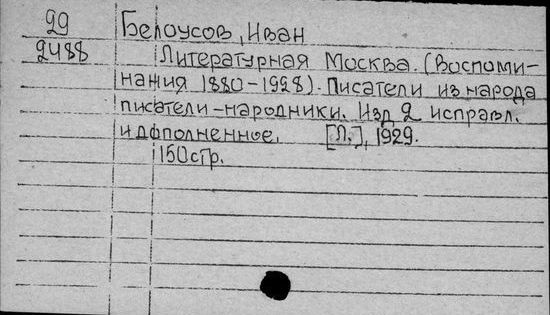 29 Белоусов, Иван
2488 Литературная Москва. (Воспоми-
нания 1880-1928). Писатели из народа
писатели-народники. Изд 2 исправл.
и дополненное. [Л.], 1929.
150 стр.